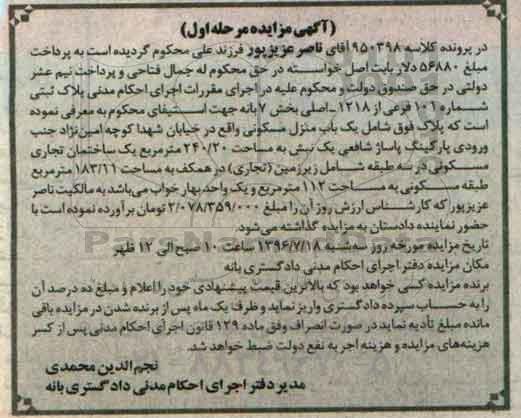 (آگهی مزایده مرحله اول)
در پرونده کلاسه ۹۵۰۳۹۸ آقای ناصر عزیزپور فرزند علی محکوم گردیده است به پرداخت
مبلغ ۵۶۸۸۰ دلار بابت اصل خواسته در حق محکوم له جمال فتاحی و پرداخت نیم عشر
دولتی در حق صندوق دولت و محکوم علیه در اجرای مقررات اجرای احکام مدنی پلاک ثبتی
شماره ۱۰۱ فرعی از ۱۲۱۸ـ اصلی بخش ۷ بانه جهت استیفای محکوم به معرفی نموده
است که پلاک فوق شامل یک باب منزل مسکونی واقع در خیابان شهدا کوچه امین‌نژاد جنب
ورودی پارکینگ پاساژ شافعی یک نبش به مساحت ۲۴۰/۲۰ مترمربع یک ساختمان تجاری
مسکونی در سه طبقه شامل زیرزمین (تجاری) در همکف به مساحت ۱۸۳/۱۱ مترمربع
طبقه مسکونی به مساحت ۱۱۲ مترمربع و یک واحد بهار خواب می‌باشد به مالکیت ناصر
عزیزپور که کارشناس ارزش روز آن را مبلغ ۲/۰۷۸/۳۵۹/۰۰۰ تومان برآورده نموده است با
حضور نماینده دادستان به مزایده گذاشته می‌شود.
تاریخ مزایده مورخه روز سه‌شنبه ۱۳۹۶/۷/۱۸ ساعت ۱۰ صبح الی ۱۲ ظهر
مکان مزایده دفتر اجرای احکام مدنی دادگستری بانه
برنده مزایده کسی خواهد بود که بالاترین قیمت پیشنهادی خود را اعلام و مبلغ ده درصد آن
را به حساب سپرده دادگستری واریز نماید و ظرف یک ماه پس از برنده شدن در مزایده باقی
مانده مبلغ تأدیه نماید در صورت انصراف وفق ماده ۱۲۹ قانون اجرای احکام مدنی پس از کسر
هزینه‌های مزایده و هزینه اجر به نفع دولت ضبط خواهد شد.
نجم الدین محمدی
مدیر دفتر اجرای احکام مدنی دادگستری بانه